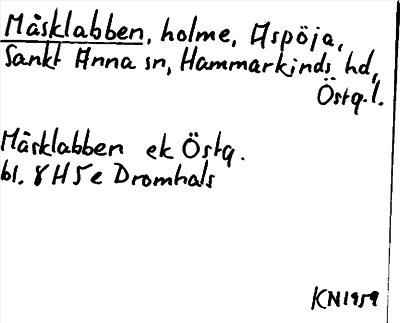 Måsklabben, holme, Aspöja,
Sankt Anna sn, Hammarkinds hd,
Östg.l.
Måsklabben ek Östg.
bl. 8H5e Dromhals
KN1959